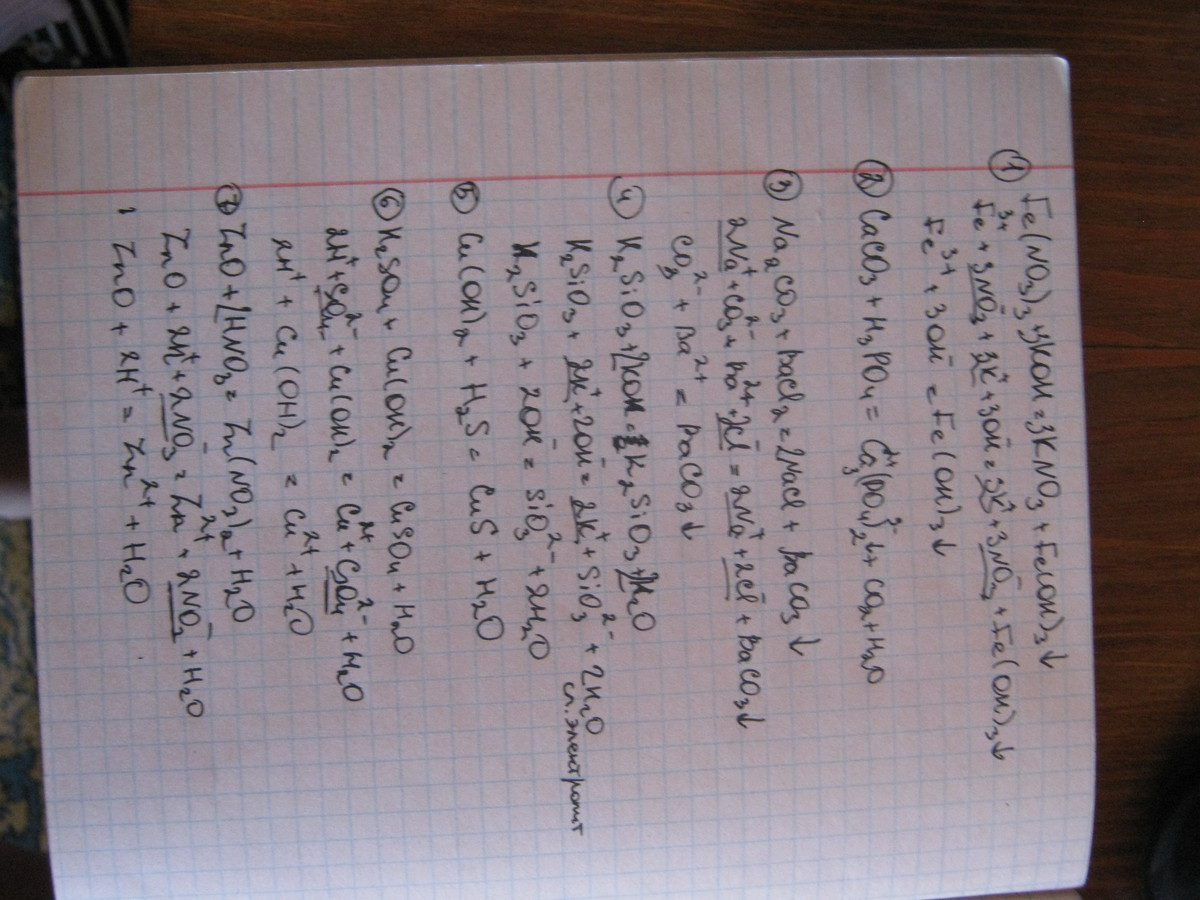 ① Fe(NO₃)₃+3KOH=3KNO₃+Fe(OH)₃↓
Fe³⁺+3NO₃⁻+3K⁺+3OH⁻=3K⁺+3NO₃⁻+Fe(OH)₃↓
Fe³⁺+3OH⁻=Fe(OH)₃↓
② CaCO₃+H₃PO₄=Ca₃²⁺(PO₄)₂³⁻↓+CO₂+H₂O
③ Na₂CO₃+BaCl₂=2NaCl+BaCO₃↓
2Na⁺+CO₃²⁻+Ba²⁺+2Cl⁻=2Na⁺+2Cl⁻+BaCO₃↓
CO₃²⁻+Ba²⁺=BaCO₃↓
④ K₂SiO₃+2KOH=K₂SiO₃+2H₂O
K₂SiO₃+2K⁺+2OH⁻=2K⁺+SiO₃²⁻+2H₂O
сл. электролит
K₂SiO₃+2OH⁻=SiO₃²⁻+2H₂O
⑤ Cu(OH)₂+H₂S=CuS+H₂O
⑥ H₂SO₄+Cu(OH)₂=CuSO₄+H₂O
2H⁺+SO₄²⁻+Cu(OH)₂=Cu²⁺+SO₄²⁻+H₂O
2H⁺+Cu(OH)₂=Cu²⁺+H₂O
⑦ ZnO+2HNO₃=Zn(NO₃)₂+H₂O
ZnO+2H⁺+2NO₃⁻=Zn²⁺+2NO₃⁻+H₂O
ZnO+2H⁺=Zn²⁺+H₂O